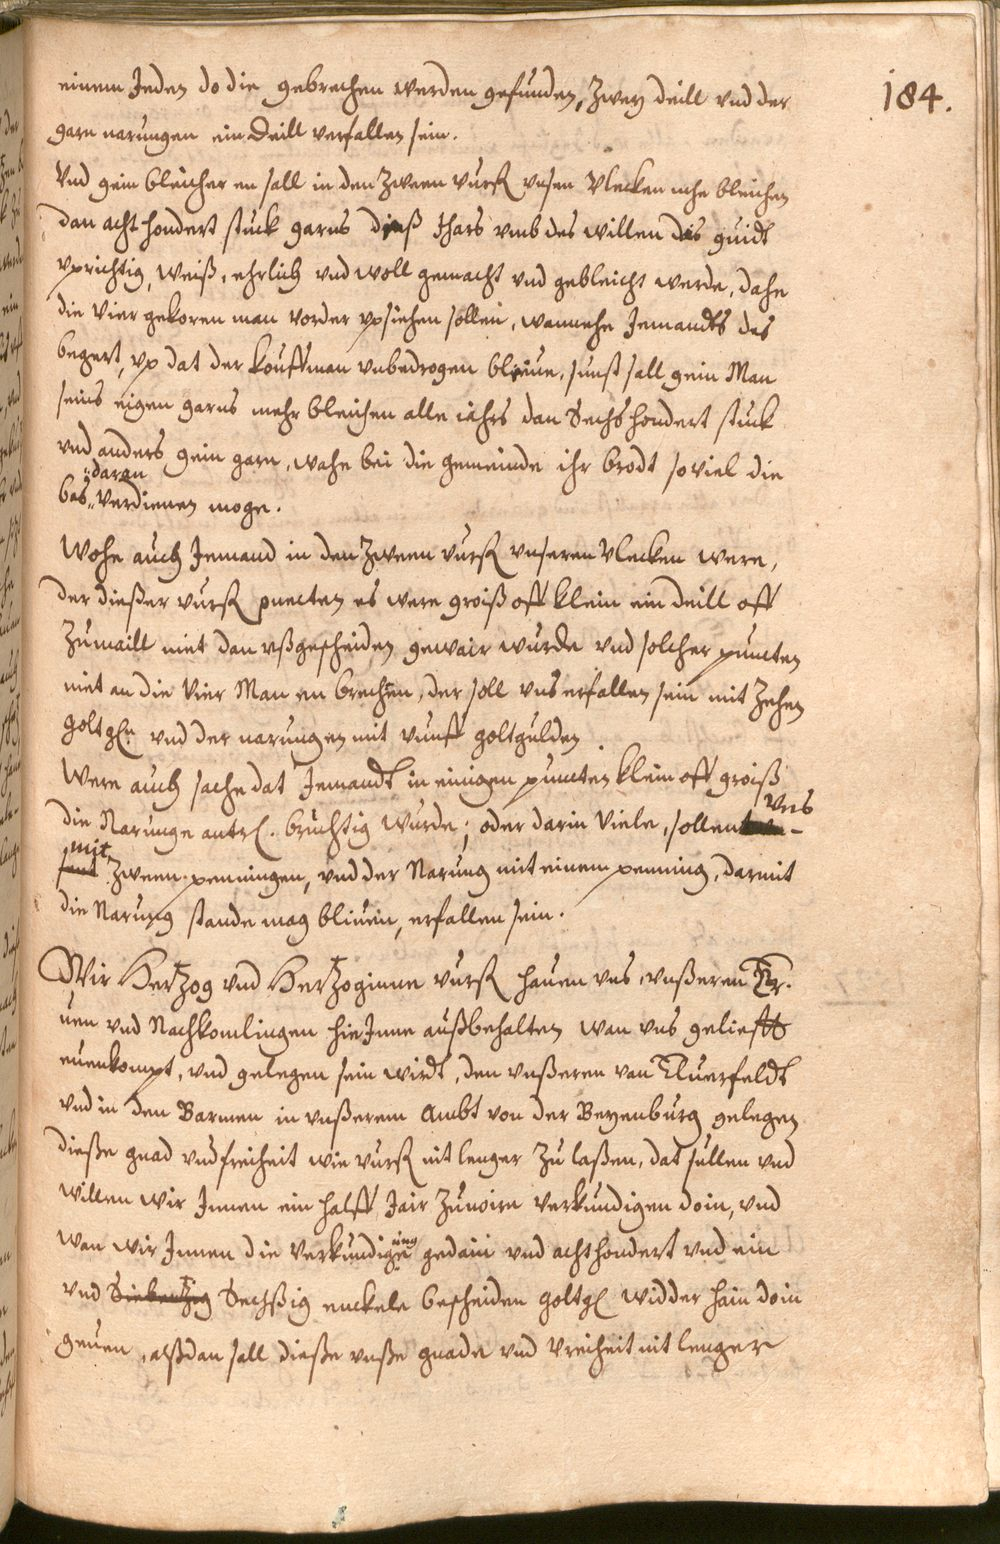 184.
einem Jeden do die gebrechen werden gefunden, Zwey deill vnd der
garn narungen ein deill verfallen sein.
Vnd gein bleicher en sall in den Zween vurß vnsen Vlecken mhe bleichen
dan acht hondert stuck garns dieß Jhars vmb des willen das guidt
vprichtig, weiß, ehrlich vnd woll gemacht vnd gebleicht werde, dahe
die Vier gekoren man vorder vpsiehen sollen, wannehe Jemandts des
begert, vp dat der kouffman vnbedrogen bleiue, sunst sall gein Man
seins eigen garns mehr bleichen alle iahrs dan Sechs hondert stuck
vnd anders gein garn, wahe bei die gemeinde ihr brodt so viel die
bas daran verdienen moge.
Wohe auch Jemand in den Zween vurß vnseren Vlecken were,
der dießer vurß puncten es were groiß off klein ein deill off
Zumaill niet dan vßgescheiden gewair wurde vnd solcher puncten
niet an die Vier Man en brechen, der soll vns erfallen sein mit Zehen
goltgln vnd der narungen mit vunff goltgulden
Were auch sache dat Jemandt in einigen puncten klein off groiß
die Narunge antrl. bruchtig wurde, oder darin Viele, sollen vns
mit Zween penningen, vnd der Narung mit einem penning, darmit
die Narung stande mag bliuen, erfallen sein.
Wir Hertzog vnd Hertzoginne vurß hauen vns, vnßeren Er-
uen vnd Nachkomlingen hie Inne außbehalten wan vns gelieff
euenkompt, vnd gelegen sein wirdt, den vnßeren van Eluerfeldt
vnd in den Barmen in vnßerem Ambt von der Beyenburg gelegen
dieße gnad vnd freiheit wie vurß nit lenger Zu laßen, dat sullen vnd
willen wir Innen ein halff Jair Zuuoirn verkundigen doin, vnd
wan wir Innen die Verkundigung gedain vnd acht hondert vnd ein
vnd Siebentzig Sechßig enckele bescheiden goltgl widder hain doin
geuen, alßdan sall dieße vnße gnade vnd Vreiheit nit lenger